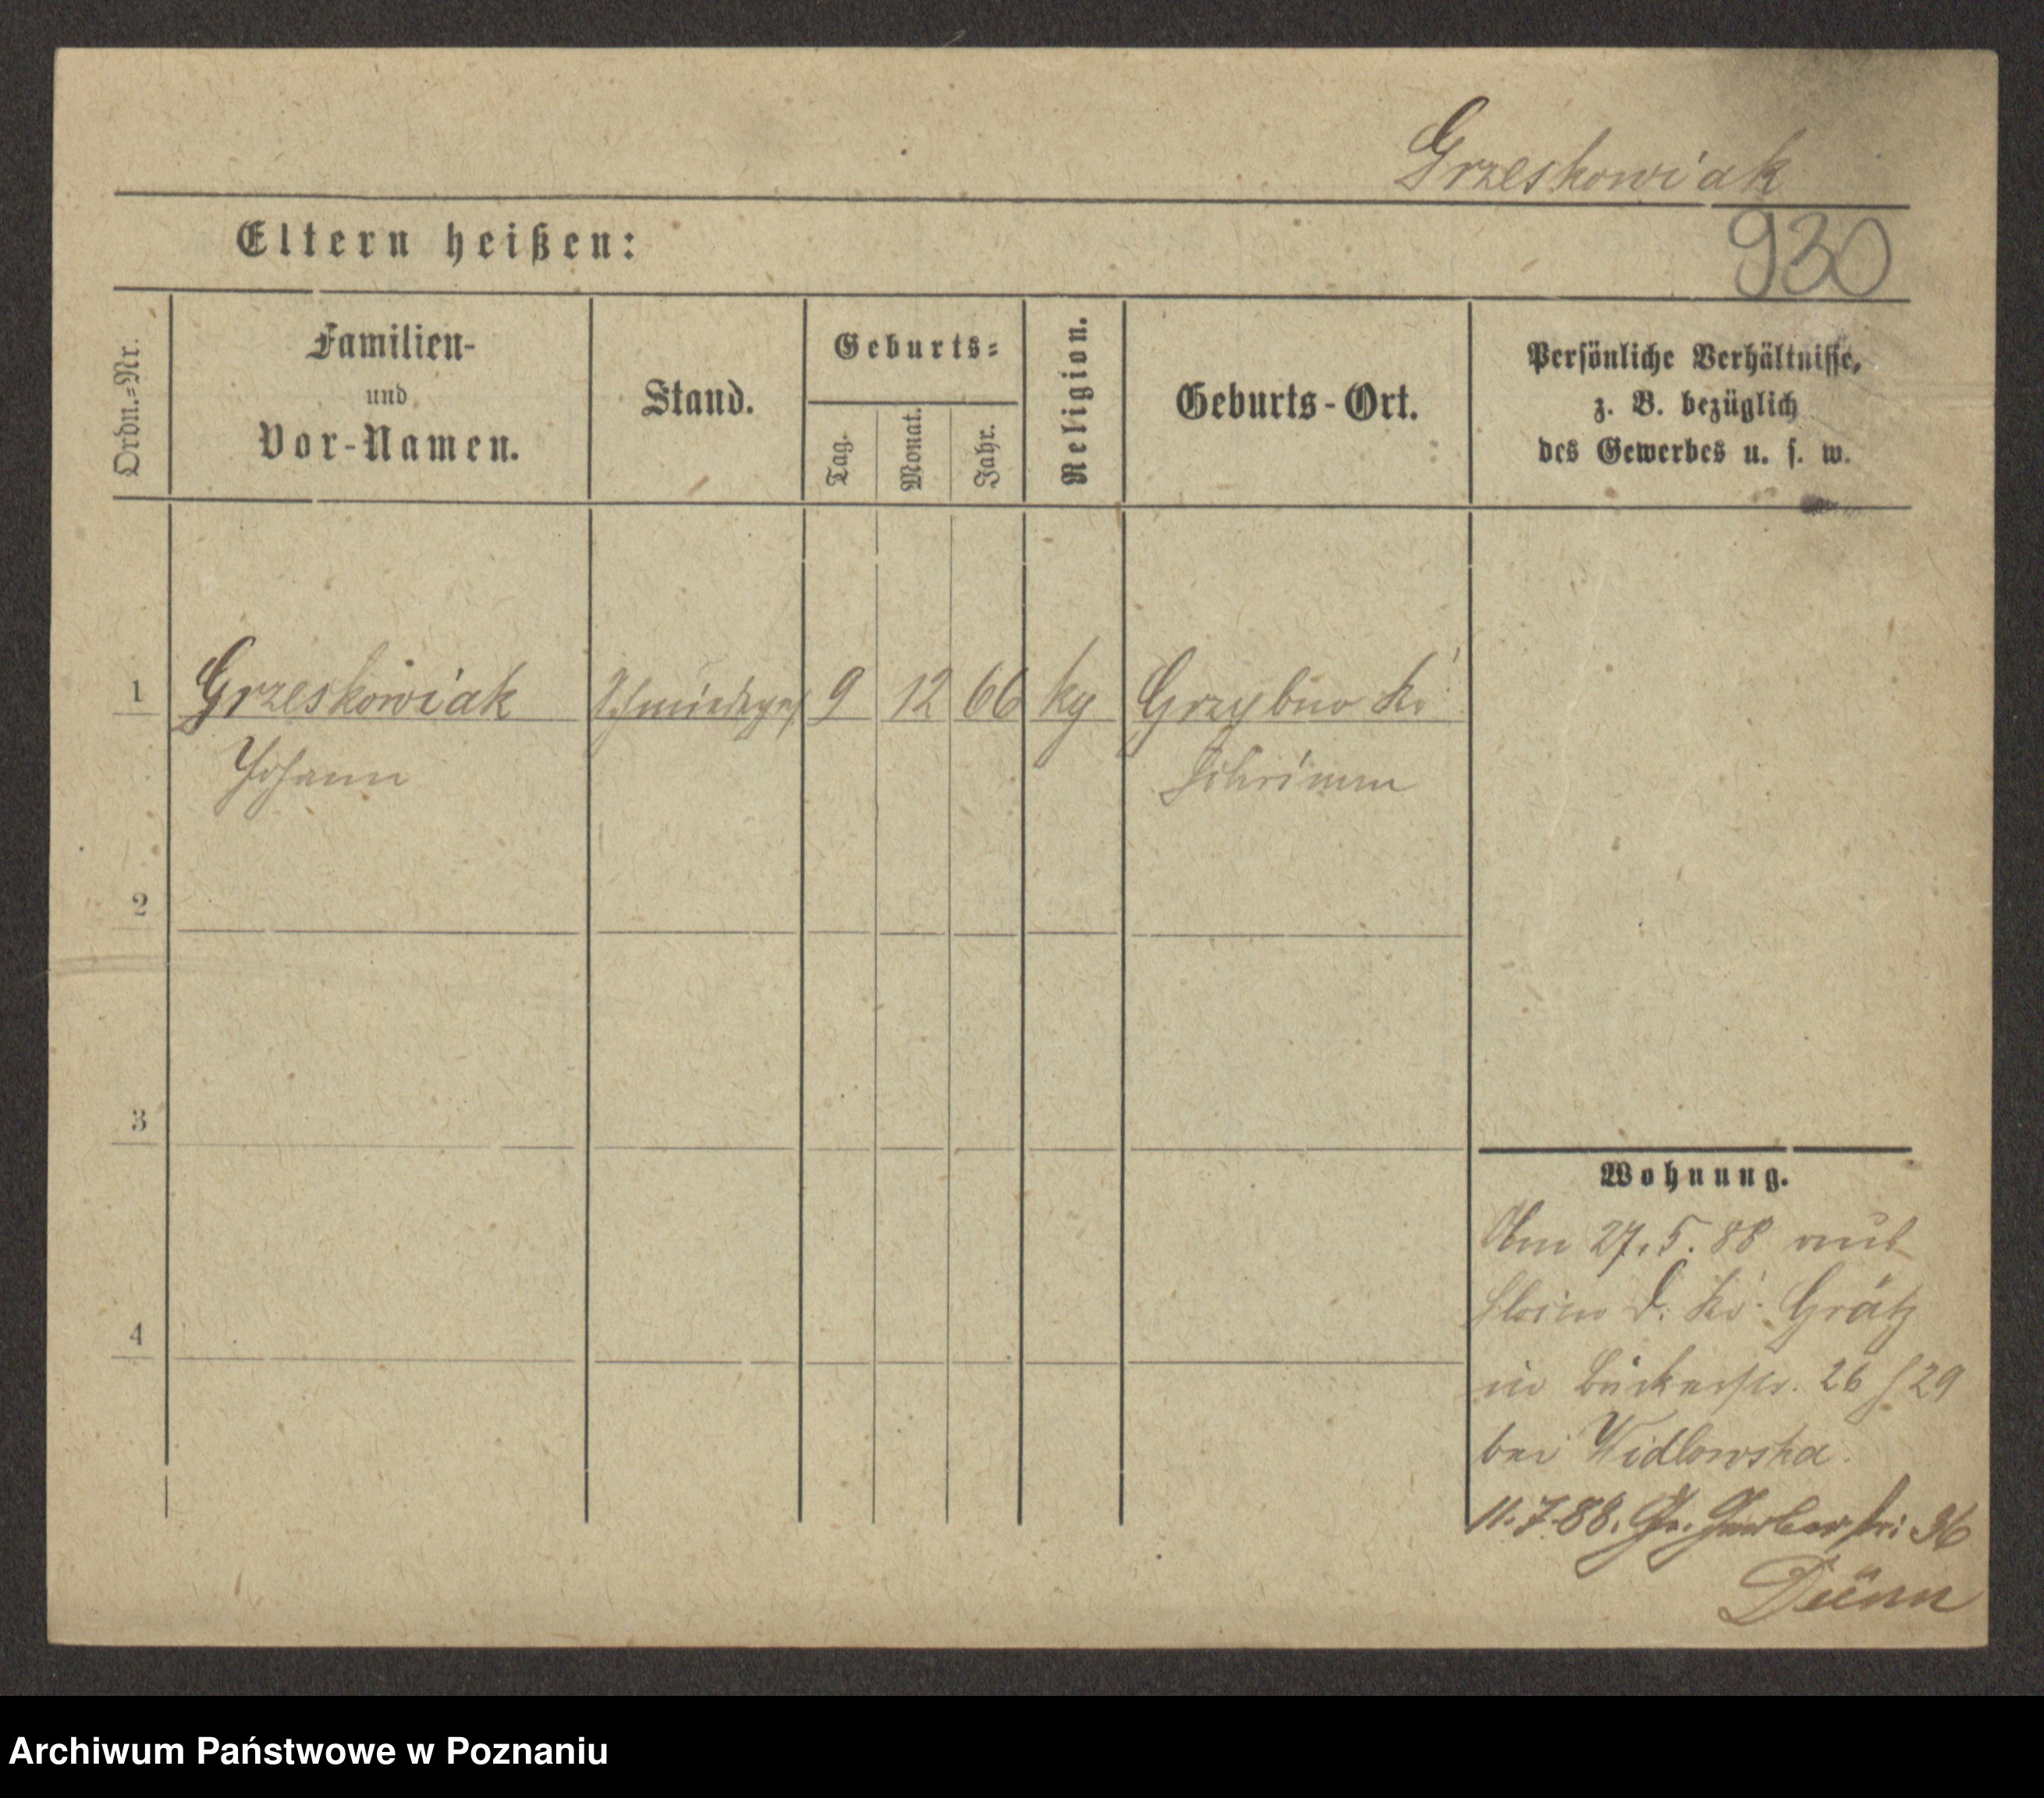 Grzeskowiak
930
Eltern heißen:
Ordn.=Nr.
Familien-
und
Vor-Namen.
Stand.
Geburts=
Tag.
Monat.
Jahr.
Religion.
Geburts-Ort.
Persönliche Verhältnisse,
z. B. bezüglich
des Gewerbes u. s. w.
1 Grzeskowiak Schmiedeges 9 12 66 kg Grzybno Kr
Johann Schrimm
2
3
4
Wohnung.
Am 27.5.88 aus
Kr. Grätz
in Bäckerstr. 26 / 29
bei Widlowska.
11.7.88. Gr. Gerberstr: 36
Dünn
Archiwum Państwowe w Poznaniu